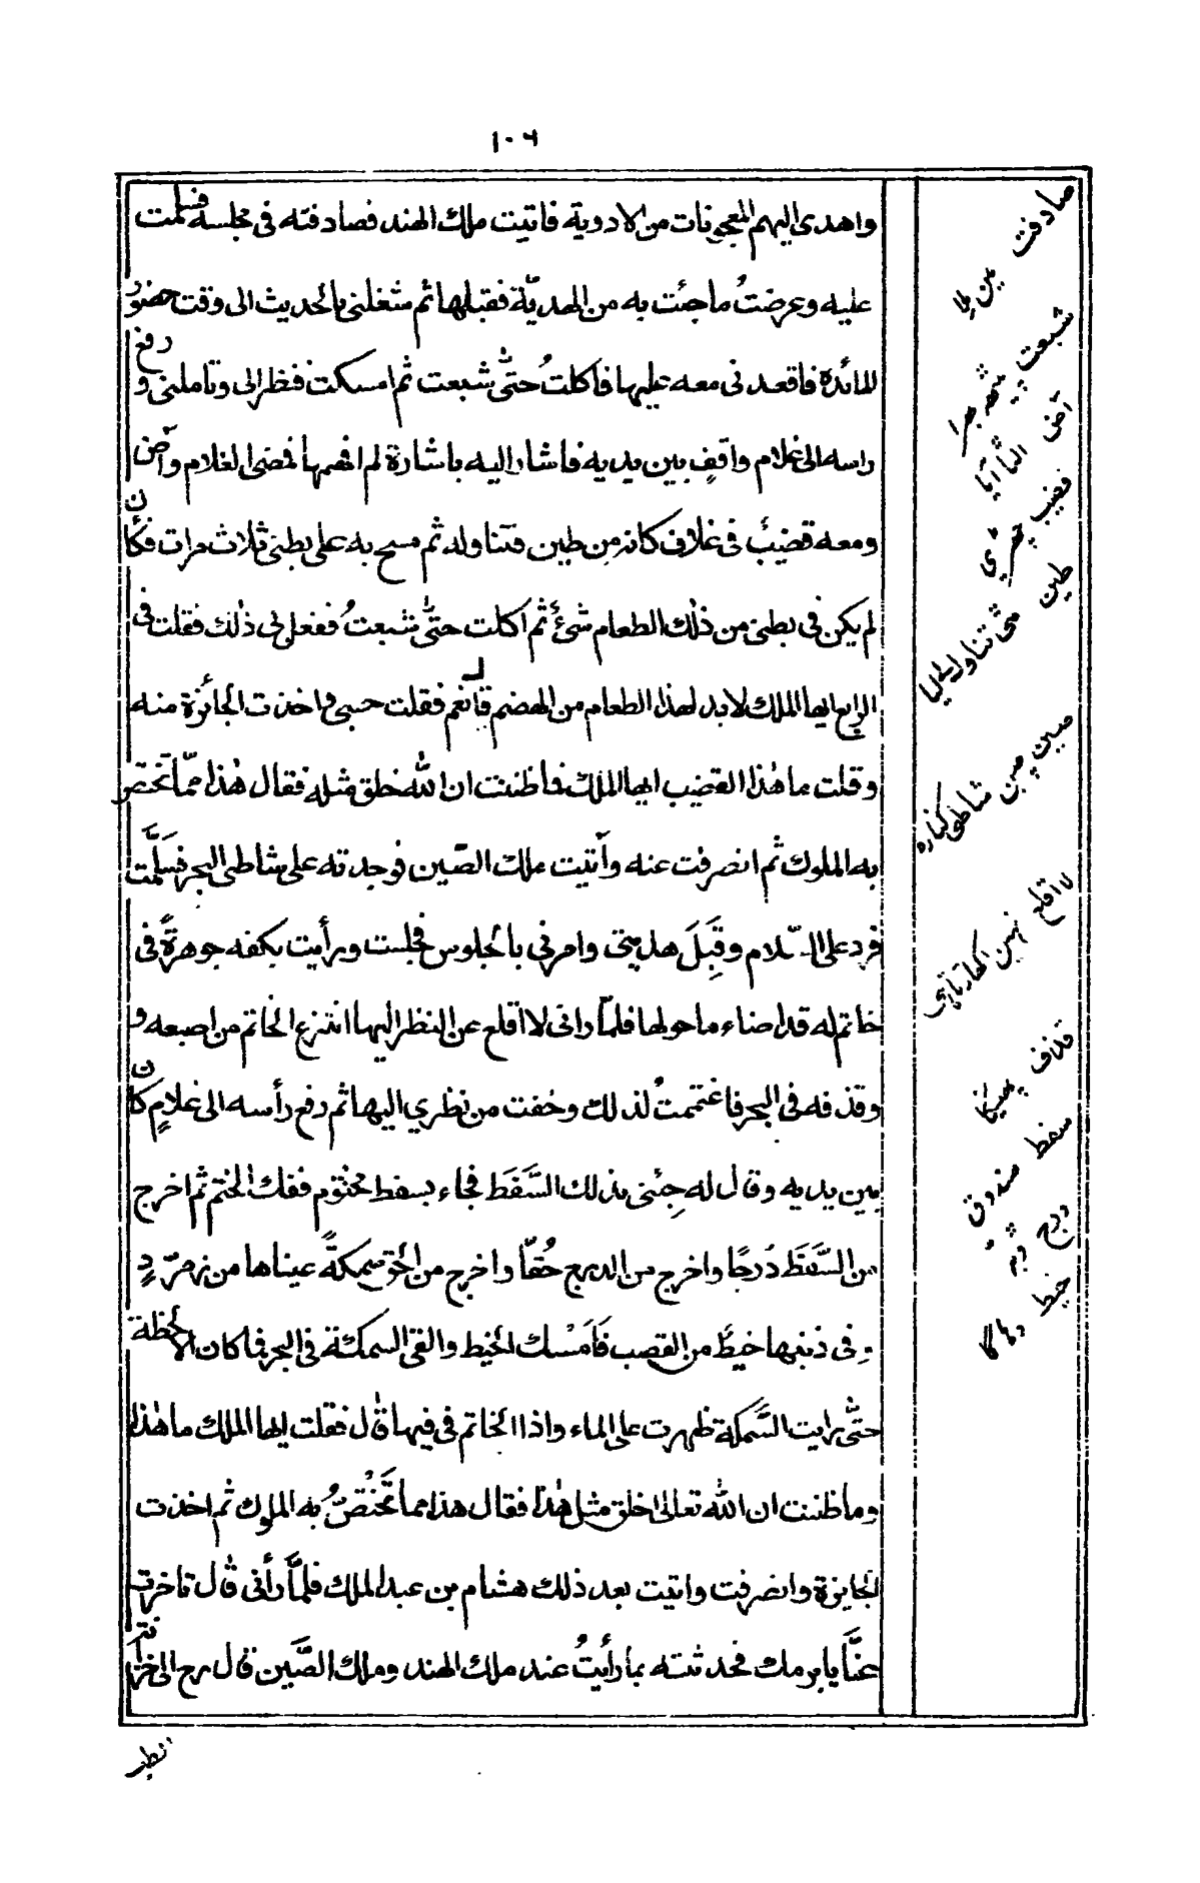 ١٠٦
واهدى اليهم المعجونات من الادوية فاتيت ملك الهند فصادفته فى مجلسه فسلمت
عليه وعرضتُ ما جئت به من الهديّة فقبلها ثم شغلنى بالحديث الى وقت حضور
المائدة فاقعدنى معه عليها فاكلتُ حتّٰى شبعت ثم امسكت فنظر الى وتاملنى و رفع
راسه الى غلام واقفٍ بين يديه فاشار اليه باشارة لم افهمها فمضى الغلام وآض
ومعه قضيبٌ فى غلاف كانه من طين فتناوله ثم مسح به على بطنى ثلاث مرات فكأن
لم يكن فى بطنى من ذلك الطعام شئٌ ثم اكلت حتّٰى شبعتُ ففعل لى ذلك فقلت فى
الرابع ايها الملك لابد لهذا الطعام من الهضم قال نعم فقلت حسبى واخذت الجائزة منه
وقلت ما هٰذا القضيب ايها الملك فما ظننت ان الله خلق مثله فقال هٰذا ممّا تختص
به الملوك ثم انصرفت عنه وأتيت ملك الصّين فوجدته على شاطى البحر فسَلَّمت
فرد على السّلام وقَبِلَ هديتى وامرنى بالجلوس فجلست ورأيت بكفه جوهرةً فى
خاتم له قد اضاء ما حولها فلمّا رانى لا اقلع عن النظر اليها انتزع الخاتم من اصبعه و
وقذفه فى البحر فاغتممتُ لذلك وخفت من نظري اليها ثم رفع رأسه الى غلامٍ كان
بين يديه وقال له جِئنى بذلك السَّفَط فجاء بسفط مختوم ففك الختم ثم اخرج
من السَّفَط دُرجًا واخرج من الدرج حُقّا واخرج من الحُقّ سمكةً عيناها من زمرّدٍ
وفى ذنبها خيطٌ من القصب فَاَمْسك الخيط والقى السمكة فى البحر فما كان الا لحظة
حتّٰى رايت السَّمكة ظهرت على الماء واذا الخاتم فى فيها قال فقلت ايها الملك ما هٰذا
وما ظننت ان الله تعالىٰ خلق مثل هٰذا فقال هذا مما تَخْتَصُّ به الملوك ثم اخذت
الجايزة وانصرفت واتيت بعد ذلك هشام بن عبد الملك فلمَّا رأنى قال تاخرت
عنَّا يا برمك فحدثته بما رأيتُ عند ملك الهند وملك الصَّين قال رح الى خزا
صادفت
شبعت
آض
قضيب
طين
صين چين شاطى كناره
لا اقلع
قذف پهينكا
سفط صندوق
درج ڈبہ
خيط دهاگا